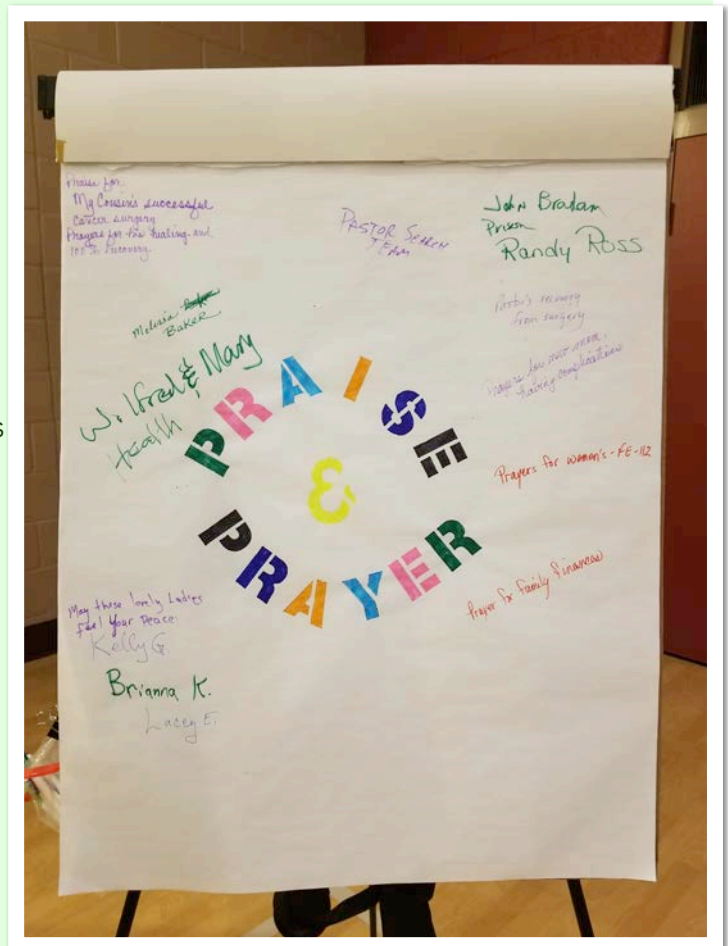 Praise for
My Cousin's successful
Cancer surgery
Prayers for the healing and
100% recovery
PASTOR SEARCH
TEAM
John
Prison
Randy Ross
Melissa
BAKER
Wilfred & Mary
Health
Pastor's recovery
from surgery
Prayers for new mom,
having complications
PRAISE
&
PRAYER
Prayers for women's
Prayer for family finances
May these lovely Ladies
Feel Your Peace:
Kelly G.
Brianna K.
Lacey E.
s